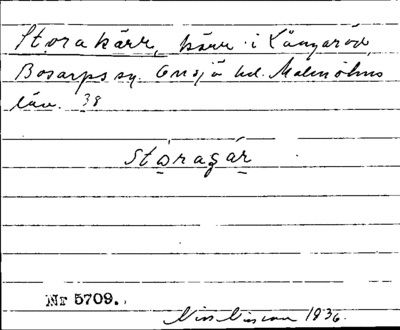 Storakärr, kärr i Långaröd,
Bosarps sn. Onsjö hd. Malmöhus
län. 38
stǫragär
Nr 5709.
1936.